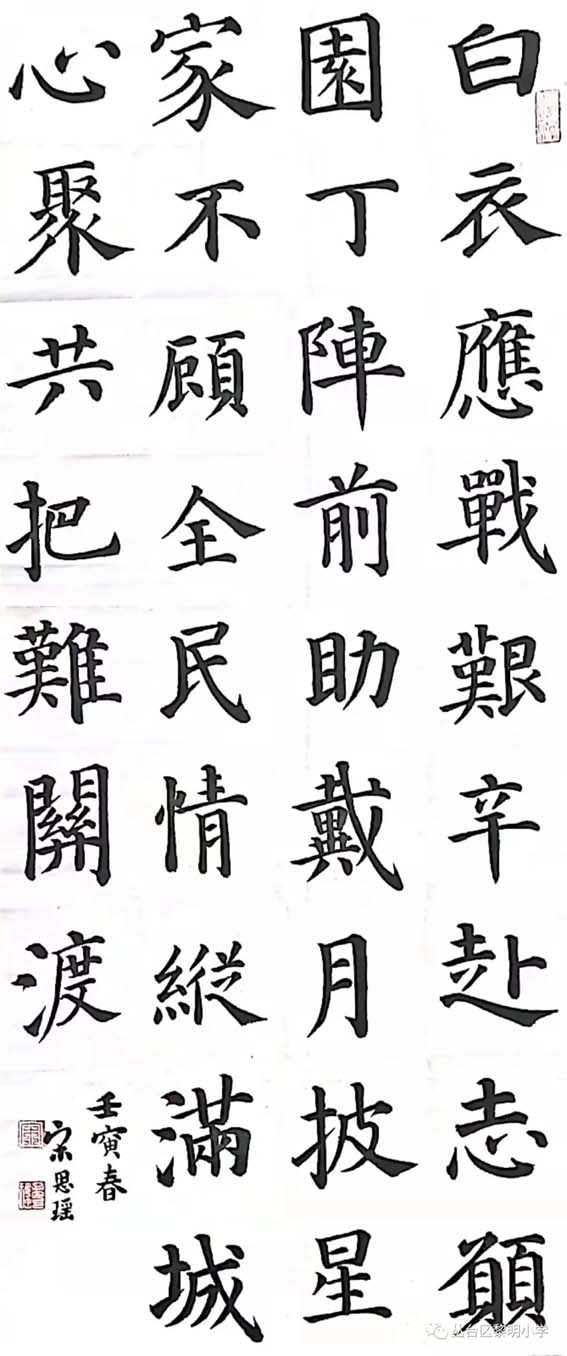 白衣應戰艱辛赴志願
園丁陣前助戴月披星
家不顧全民情縱滿城
心聚共把難關渡
壬寅春
宋思瑶
丛台区黎明小学